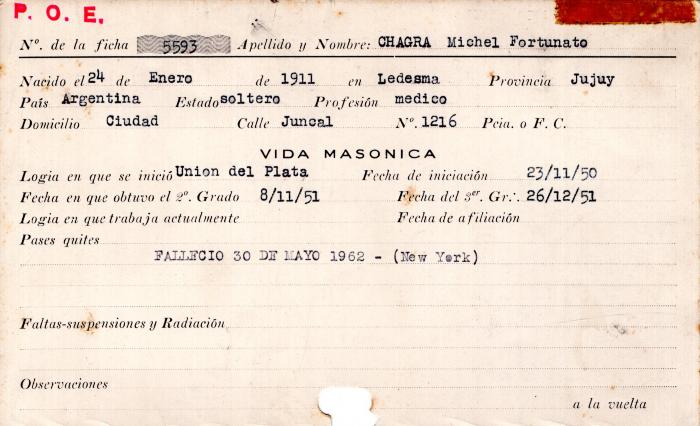 P. O. E.
Nº. de la ficha 5593 Apellido y Nombre: CHAGRA Michel Fortunato
Nacido el 24 de Enero de 1911 en Ledesma Provincia Jujuy
País Argentina Estado soltero Profesión medico
Domicilio Ciudad Calle Juncal Nº. 1216 Pcia. o F. C.
VIDA MASONICA
Logia en que se inició Union del Plata Fecha de iniciación 23/11/50
Fecha en que obtuvo el 2º. Grado 8/11/51 Fecha del 3er. Gr∴ 26/12/51
Logia en que trabaja actualmente Fecha de afiliación
Pases quites
FALLECIO 30 DE MAYO 1962 - (New York)
Faltas-suspensiones y Radiación
Observaciones
a la vuelta